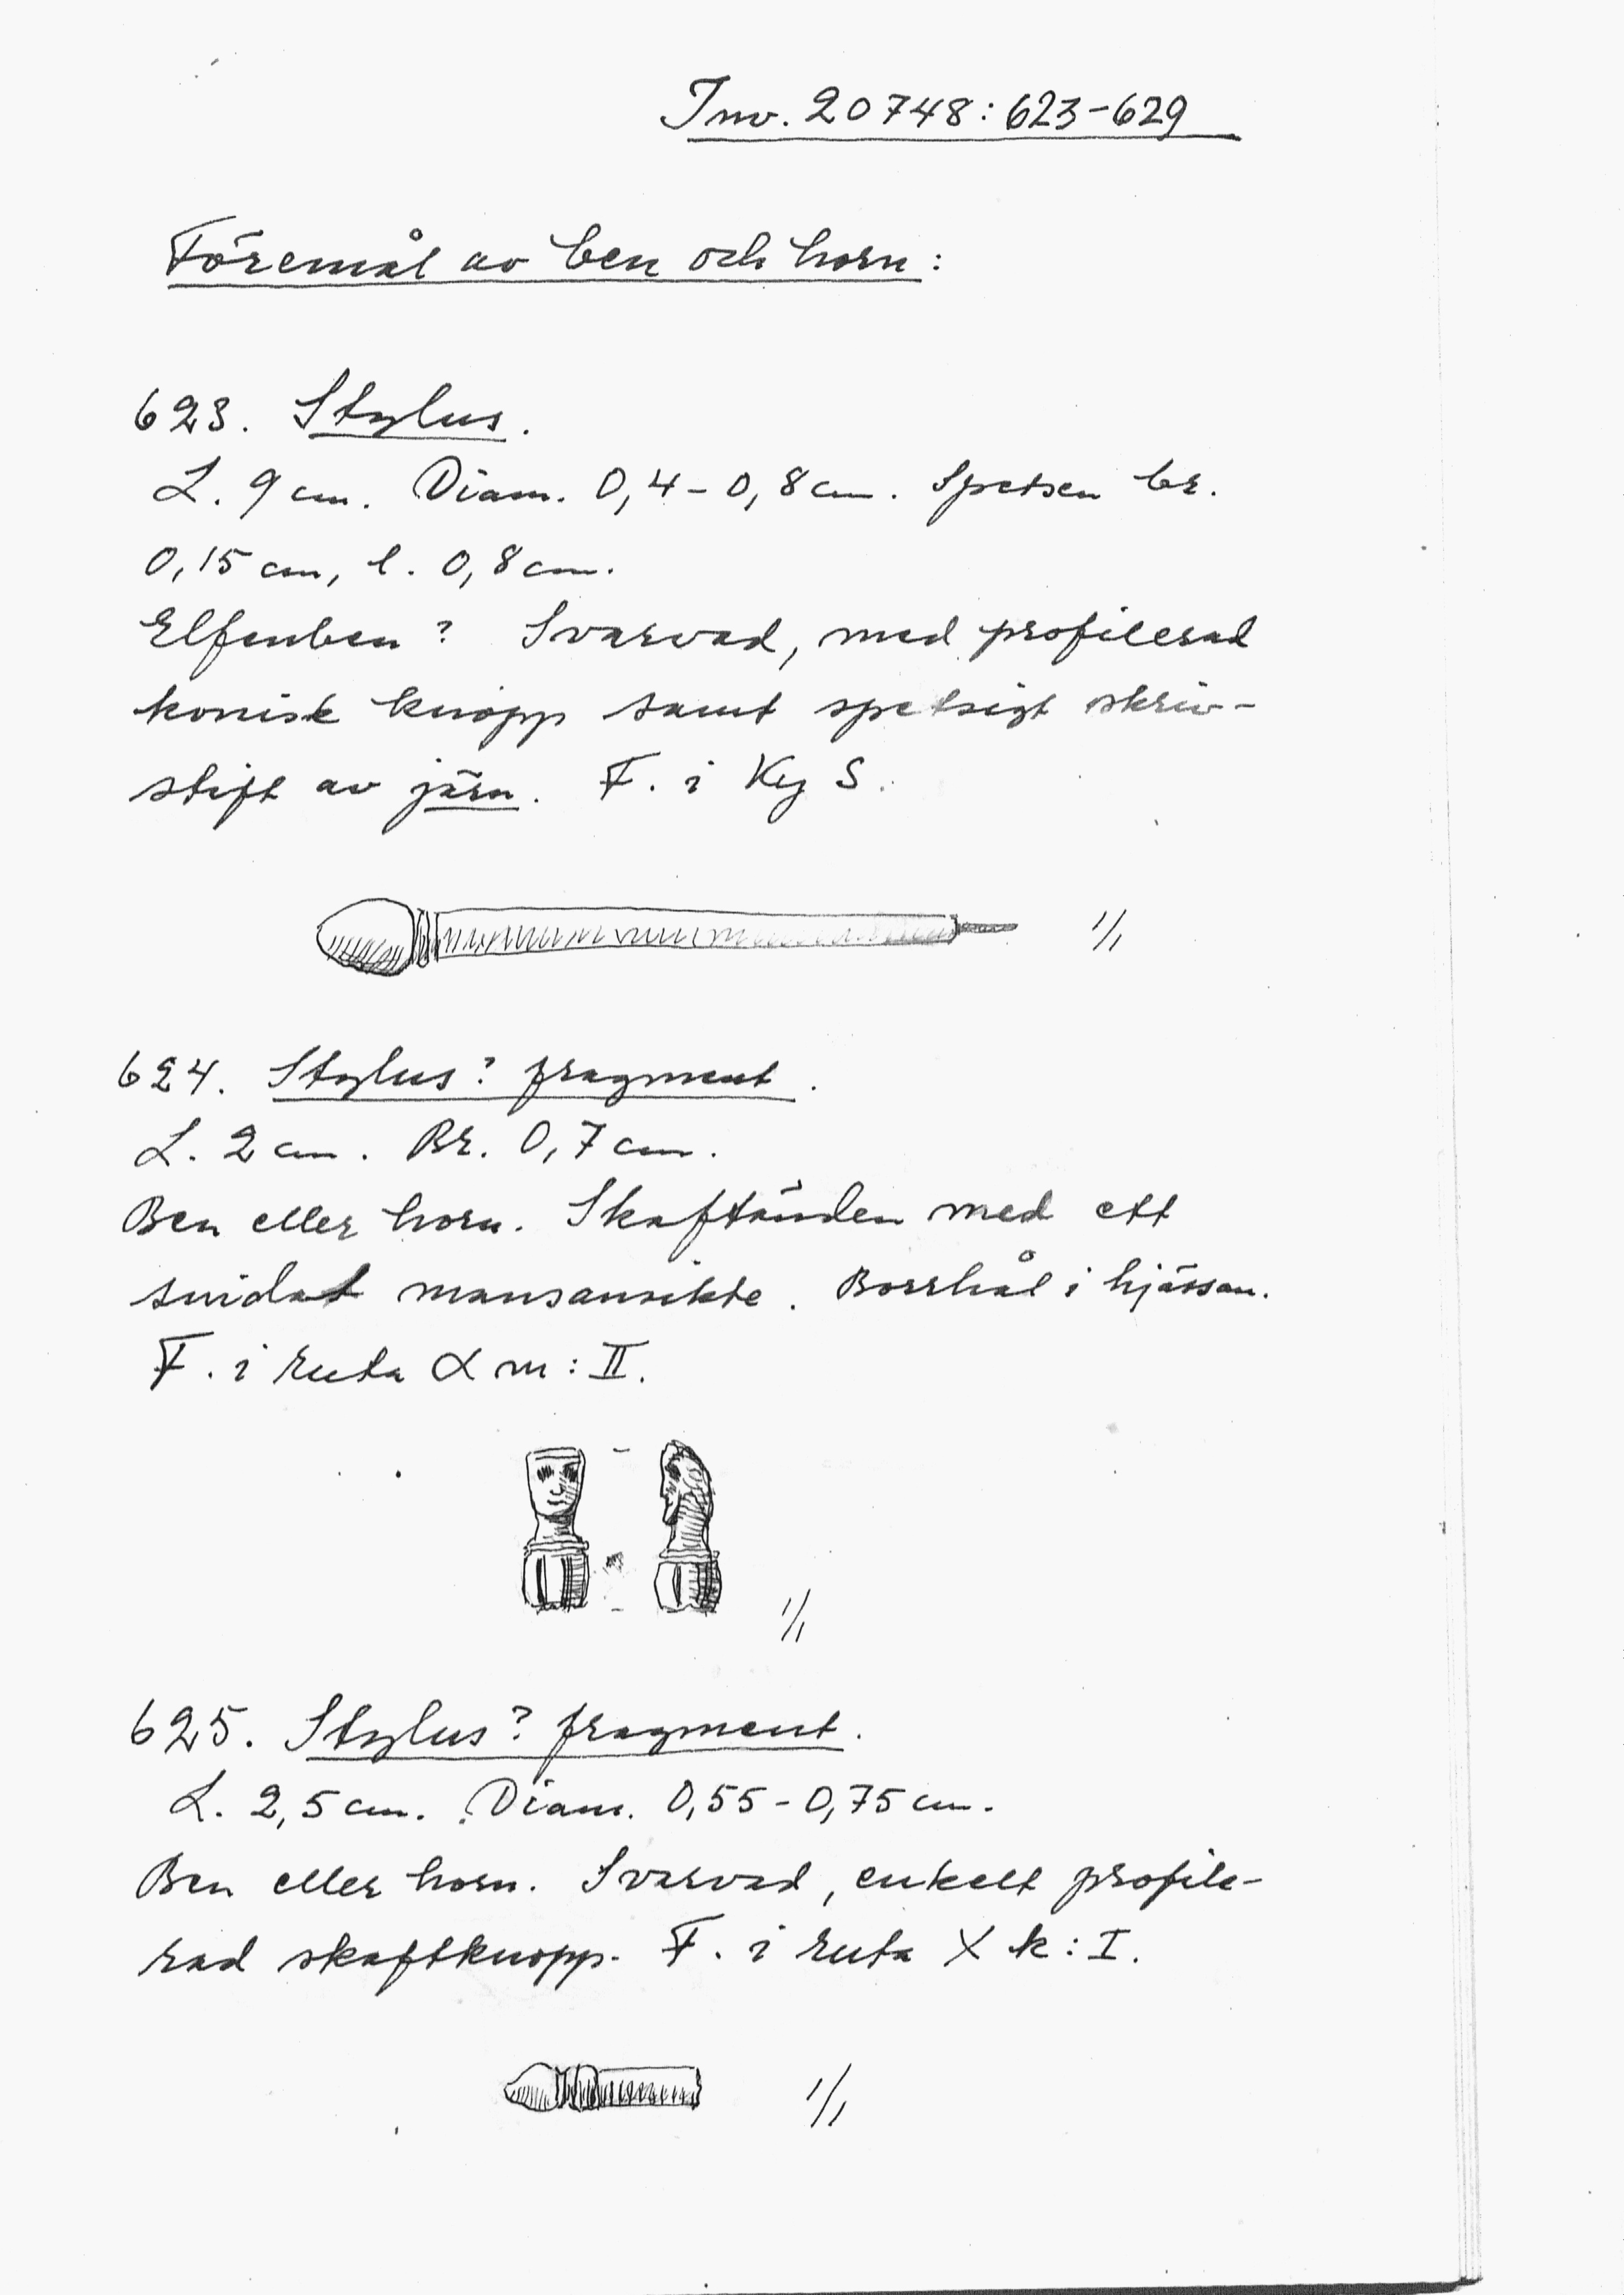 Inv. 20748:623-629
Föremål av ben och horn:
623. Stylus.
L. 9 cm. Diam. 0,4-0,8 cm. Spetsen br.
0,15 cm, l. 0,8 cm.
Elfenben? Svarvad, med profilerad
konisk knopp samt spetsigt skriv-
stift av järn. F. i Kg S.
1/1
624. Stylus? fragment.
L. 2 cm. Br. 0,7 cm.
Ben eller horn. Skaftänden med ett
snidat mansansikte. Borrhål i hjässan.
F. i ruta α m:II.
1/1
625. Stylus? fragment.
L. 2,5 cm. Diam. 0,55-0,75 cm.
Ben eller horn. Svarvad, enkelt profile-
rad skaftknopp. F. i ruta X k:I.
1/1